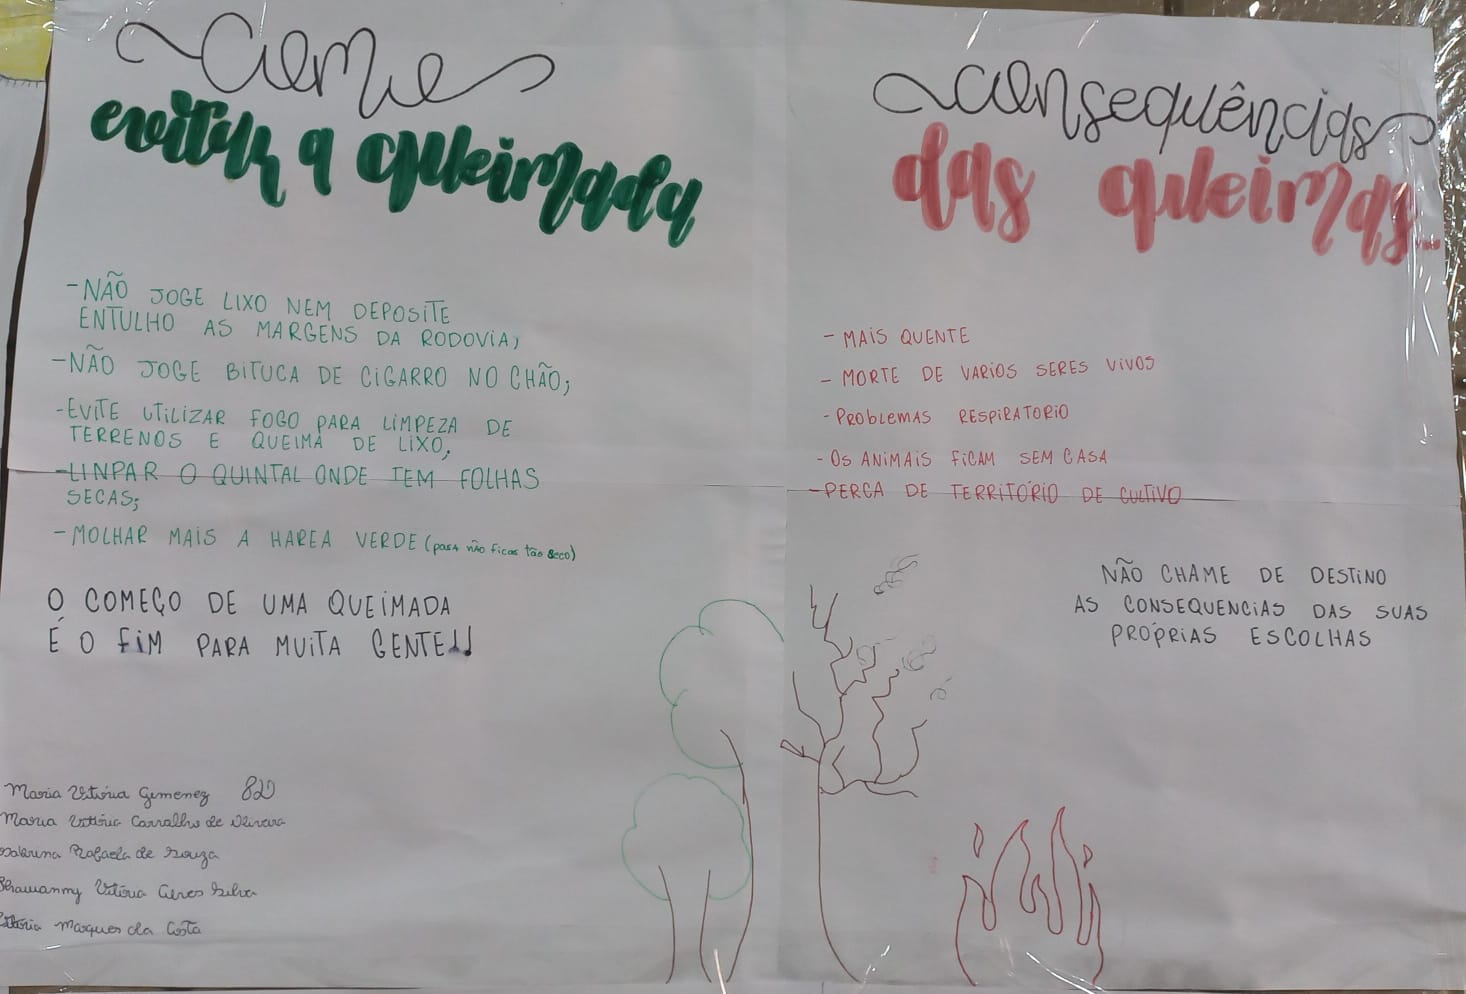 Como
evitar a queimada
-NÃO JOGE LIXO NEM DEPOSITE
ENTULHO AS MARGENS DA RODOVIA;
-NÃO JOGE BITUCA DE CIGARRO NO CHÃO;
-EVITE UTILIZAR FOGO PARA LIMPEZA DE
TERRENOS E QUEIMA DE LIXO;
-LINPAR O QUINTAL ONDE TEM FOLHAS
SECAS;
-MOLHAR MAIS A HAREA VERDE (para não ficar tão seco)
O COMEÇO DE UMA QUEIMADA
É O FIM PARA MUITA GENTE!!
Maria Vitória Gemenez 8º D
Maria Vitória Carvalho de Oliveira
Sabrina Rafaela de Souza
Vitória Silva
Vitória Marques da Costa
Consequências
das queimas...
- MAIS QUENTE
- MORTE DE VARIOS SERES VIVOS
- PROBLEMAS RESPIRATORIO
- OS ANIMAIS FICAM SEM CASA
- PERCA DE TERRITÓRIO DE CULTIVO
NÃO CHAME DE DESTINO
AS CONSEQUENCIAS DAS SUAS
PRÓPRIAS ESCOLHAS